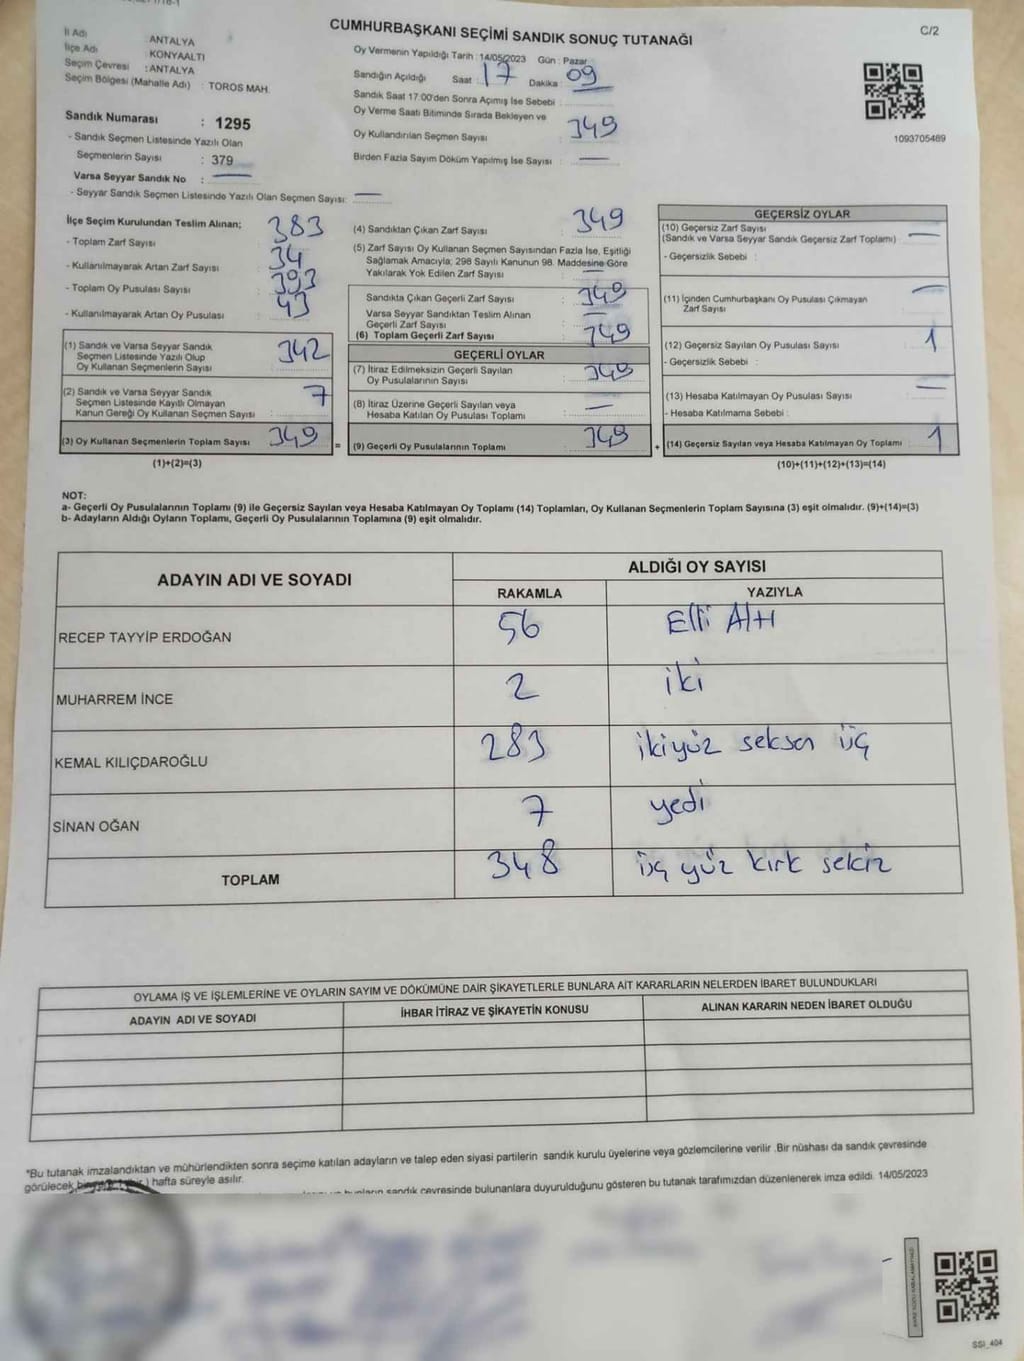 CUMHURBAŞKANI SEÇİMİ SANDIK SONUÇ TUTANAĞI
C/2
İl Adı ANTALYA
İlçe Adı KONYAALTI
Seçim Çevresi : ANTALYA
Seçim Bölgesi (Mahalle Adı) : TOROS MAH.
Sandık Numarası : 1295
- Sandık Seçmen Listesinde Yazılı Olan
Seçmenlerin Sayısı : 379
Varsa Seyyar Sandık No : —
- Seyyar Sandık Seçmen Listesinde Yazılı Olan Seçmen Sayısı: —
Oy Vermenin Yapıldığı Tarih : 14/05/2023 Gün : Pazar
Sandığın Açıldığı Saat : 17 Dakika : 09
Sandık Saat 17:00'den Sonra Açımış İse Sebebi :
Oy Verme Saati Bitiminde Sırada Bekleyen ve
Oy Kullandırılan Seçmen Sayısı : 349
Birden Fazla Sayım Döküm Yapılmış İse Sayısı : —
1093705469
İlçe Seçim Kurulundan Teslim Alınan;
- Toplam Zarf Sayısı 383
- Kullanılmayarak Artan Zarf Sayısı 34
- Toplam Oy Pusulası Sayısı 393
- Kullanılmayarak Artan Oy Pusulası 43
(1) Sandık ve Varsa Seyyar Sandık
Seçmen Listesinde Yazılı Olup
Oy Kullanan Seçmenlerin Sayısı : 342
(2) Sandık ve Varsa Seyyar Sandık
Seçmen Listesinde Kayıtlı Olmayan
Kanun Gereği Oy Kullanan Seçmen Sayısı : 7
(3) Oy Kullanan Seçmenlerin Toplam Sayısı : 349 =
(1)+(2)=(3)
(4) Sandıktan Çıkan Zarf Sayısı : 349
(5) Zarf Sayısı Oy Kullanan Seçmen Sayısından Fazla İse, Eşitliği
Sağlamak Amacıyla; 298 Sayılı Kanunun 98. Maddesine Göre
Yakılarak Yok Edilen Zarf Sayısı : —
Sandıkta Çıkan Geçerli Zarf Sayısı : 349
Varsa Seyyar Sandıktan Teslim Alınan
Geçerli Zarf Sayısı : —
(6) Toplam Geçerli Zarf Sayısı : 349
GEÇERLİ OYLAR
(7) İtiraz Edilmeksizin Geçerli Sayılan
Oy Pusulalarının Sayısı : 348
(8) İtiraz Üzerine Geçerli Sayılan veya
Hesaba Katılan Oy Pusulası Toplamı : —
(9) Geçerli Oy Pusulalarının Toplamı : 348 +
GEÇERSİZ OYLAR
(10) Geçersiz Zarf Sayısı : —
(Sandık ve Varsa Seyyar Sandık Geçersiz Zarf Toplamı)
- Geçersizlik Sebebi :
(11) İçinden Cumhurbaşkanı Oy Pusulası Çıkmayan
Zarf Sayısı : —
(12) Geçersiz Sayılan Oy Pusulası Sayısı : 1
- Geçersizlik Sebebi :
(13) Hesaba Katılmayan Oy Pusulası Sayısı : —
- Hesaba Katılmama Sebebi :
(14) Geçersiz Sayılan veya Hesaba Katılmayan Oy Toplamı : 1
(10)+(11)+(12)+(13)=(14)
NOT:
a- Geçerli Oy Pusulalarının Toplamı (9) ile Geçersiz Sayılan veya Hesaba Katılmayan Oy Toplamı (14) Toplamları, Oy Kullanan Seçmenlerin Toplam Sayısına (3) eşit olmalıdır. (9)+(14)=(3)
b- Adayların Aldığı Oyların Toplamı, Geçerli Oy Pusulalarının Toplamına (9) eşit olmalıdır.
ADAYIN ADI VE SOYADI ALDIĞI OY SAYISI
RAKAMLA YAZIYLA
RECEP TAYYİP ERDOĞAN 56 Elli Altı
MUHARREM İNCE 2 iki
KEMAL KILIÇDAROĞLU 283 ikiyüz seksen üç
SİNAN OĞAN 7 yedi
TOPLAM 348 üç yüz kırk sekiz
OYLAMA İŞ VE İŞLEMLERİNE VE OYLARIN SAYIM VE DÖKÜMÜNE DAİR ŞİKAYETLERLE BUNLARA AİT KARARLARIN NELERDEN İBARET BULUNDUKLARI
ADAYIN ADI VE SOYADI İHBAR İTİRAZ VE ŞİKAYETİN KONUSU ALINAN KARARIN NEDEN İBARET OLDUĞU
*Bu tutanak imzalandıktan ve mühürlendikten sonra seçime katılan adayların ve talep eden siyasi partilerin sandık kurulu üyelerine veya gözlemcilerine verilir .Bir nüshası da sandık çevresinde
görülecek bir ) hafta süreyle asılır.
sandık çevresinde bulunanlara duyurulduğunu gösteren bu tutanak tarafımızdan düzenlenerek imza edildi. 14/05/2023
SSI_404